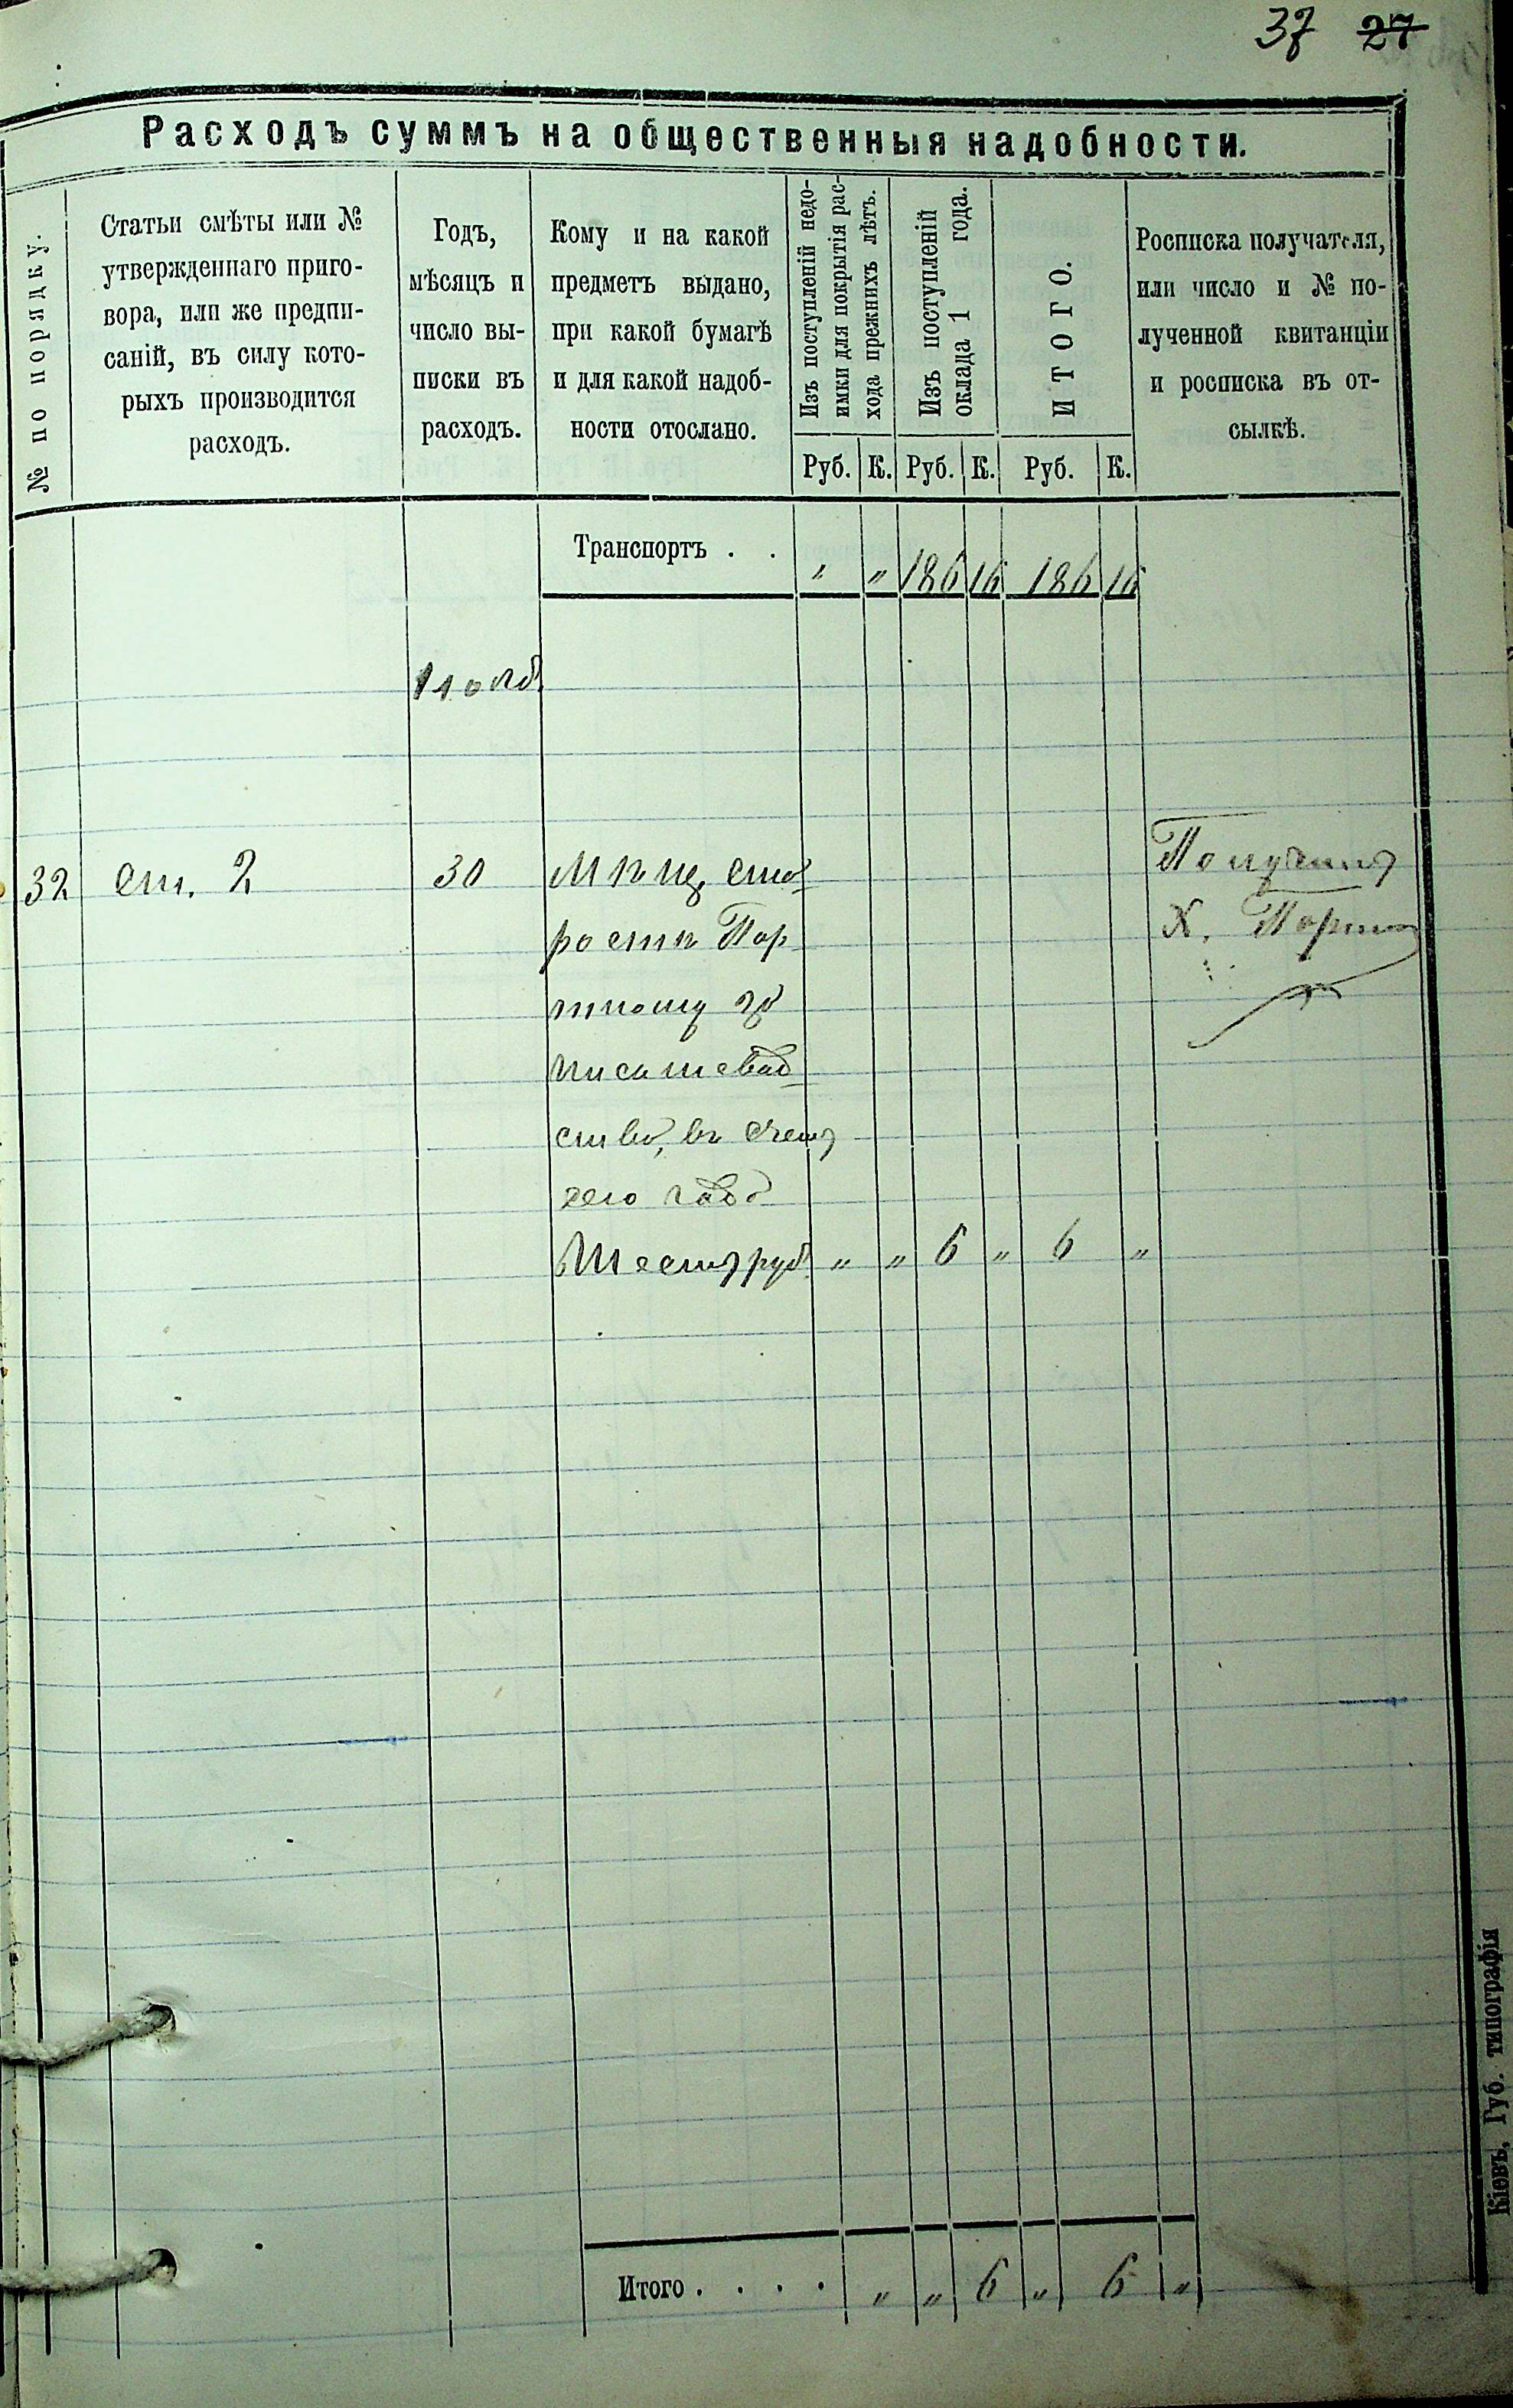 37 27
Расходъ суммъ на общественныя надобности.
№ по порядку.
Статьи смѣты или №
утвержденнаго приго-
вора, или же предпи-
саній, въ силу кото-
рыхъ производится
расходъ.
Годъ,
мѣсяцъ и
число вы-
писки въ
расходъ.
Кому и на какой
предметъ выдано,
при какой бумагѣ
и для какой надоб-
ности отослано.
Изъ поступленій недо-
имки для покрытія рас-
хода прежнихъ лѣтъ.
Изъ поступленій
оклада 1 года.
ИТОГО.
Росписка получателя,
или число и № по-
лученной квитанціи
и росписка въ от-
сылкѣ.
Руб. К. Руб. К. Руб. К.
Транспортъ . . " " 186 16 186 16
32 ст. 2 30 Мѣщ. ста
ростѣ Пор
тному за
писмовод
ство, въ счетъ
сего года
Шесть руб. " " 6 " 6 "
Получилъ
Х. Портной
Итого . . . . " " 6 " 6 "
Кіевъ, Губ. типографія